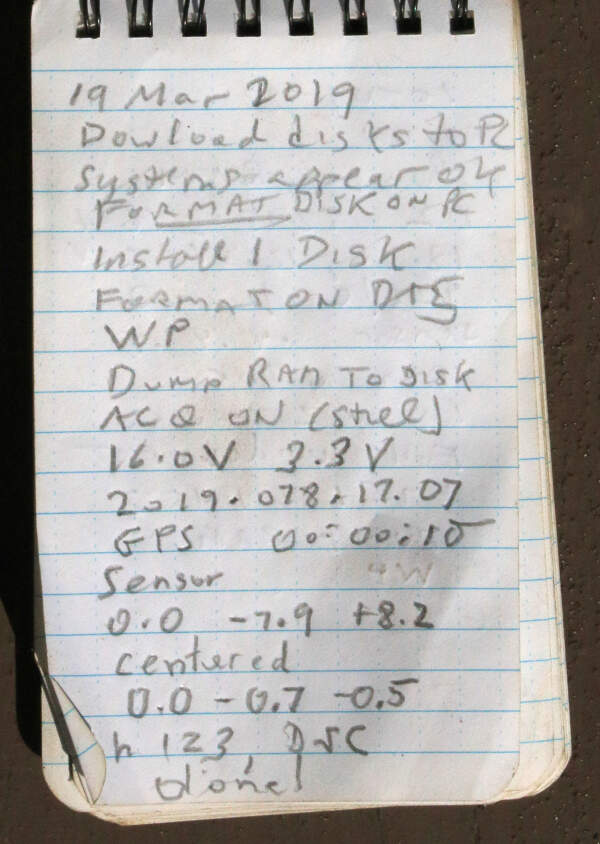 19 Mar 2019
Dowload disks to PC
Systems appear OK
FORMAT DISK ON PC
Install 1 Disk
FORMAT ON
WP
Dump RAM TO DISK
ACQ ON (Steel)
16.0V 3.3V
2019.078.17.07
GPS 00:00:15
Sensor
0.0 -7.9 +8.2
centered
0.0 -0.7 -0.5
h 123, DSC
done